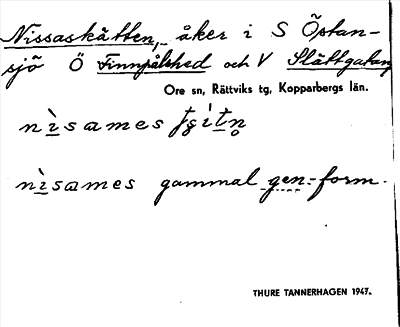 Nissaskätten, åker i S Östan-
sjö Ö Finnpålshed och V Slättgatan
Ore sn, Rättviks tg, Kopparbergs län.
nìsames
nìsames gammal gen.-form.
THURE TANNERHAGEN 1947.